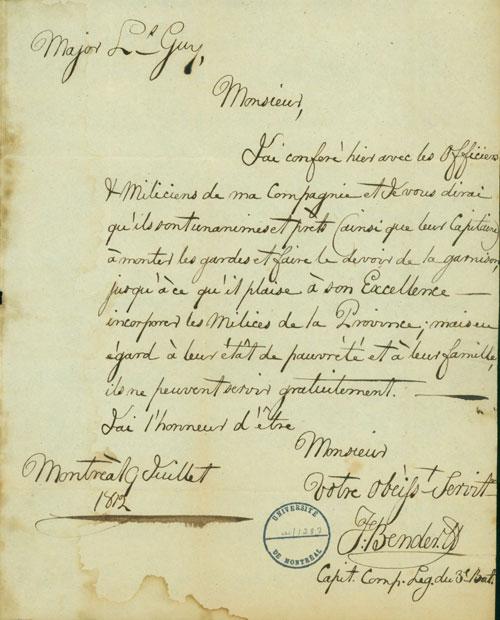 Major Ls Guy,
Monsieur,
J'ai conferé hier avec les Officiers
& Miliciens de ma Compagnie et Je vous dirai
qu'ils sont unanimes et prêts (ainsi que leur Capitaine
à monter les gardes et faire le devoir de la garnison
jusqu'à ce qu'il plaise à son Excellence —
incorporer les Milices de la Province; mais eu
égard à leur étât de pauvrété et à leur famille,
ils ne peuvent servir gratuitement. —
J'ai l'honneur d'être
Monsieur
Votre Obéisst Servitr
Montréal 9 Juillet
1812
F: Bender
Capit. Comp. Leg. du 3e Bat.
UNIVERSITÉ
DE MONTRÉAL